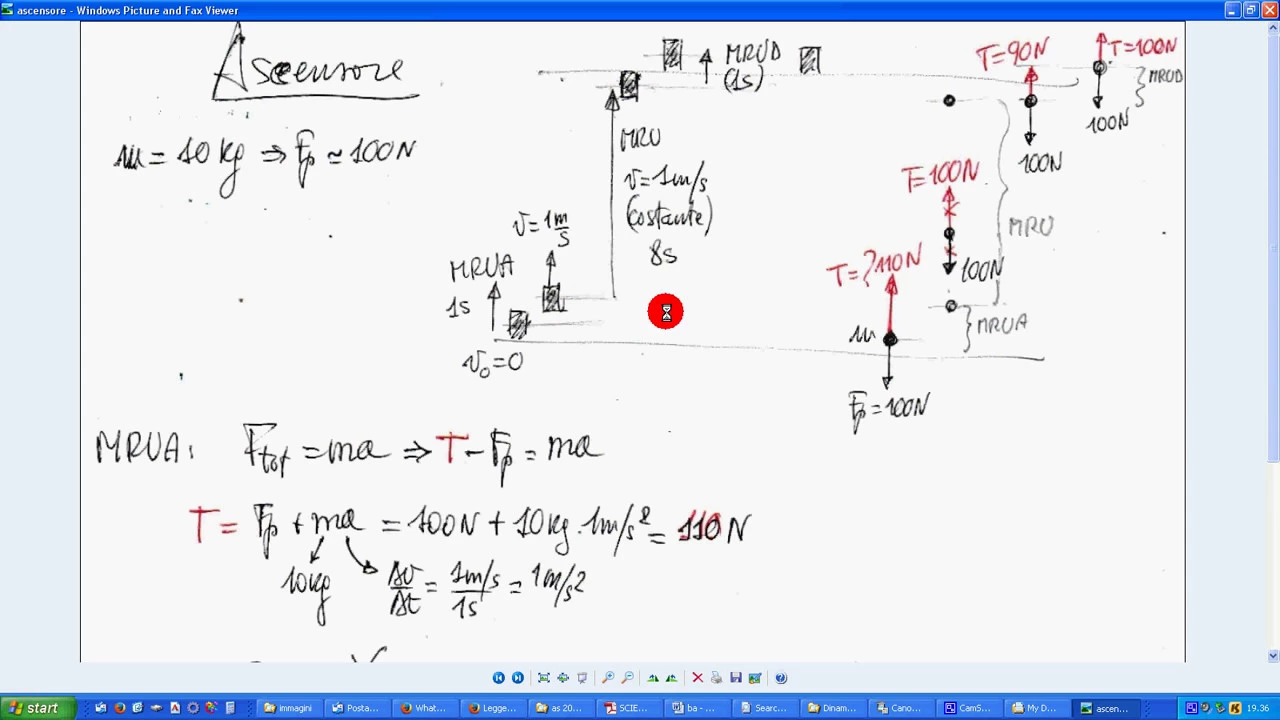 ascensore - Windows Picture and Fax Viewer
Ascensore
m = 10 kg ⇒ Fp ≃ 100N
MRUD
(1s)
MRU
v = 1m/s
(costante)
8s
v = 1 m/s
MRUA
1s
v₀ = 0
T=90N
100N
T=100N
100N
MRUD
T=100N
100N
MRU
T=? 110N
m
Fp = 100N
MRUA
MRUA: Ftot = ma ⇒ T - Fp = ma
T = Fp + ma = 100N + 10kg · 1m/s² = 110 N
10kg
Δv/Δt = 1m/s / 1s = 1m/s²
start
Immagini
Posta...
What...
Legge...
as 20...
SCIE...
ba - ...
Searc...
Dinam...
Cano...
CamS...
My D...
ascen...
19.36